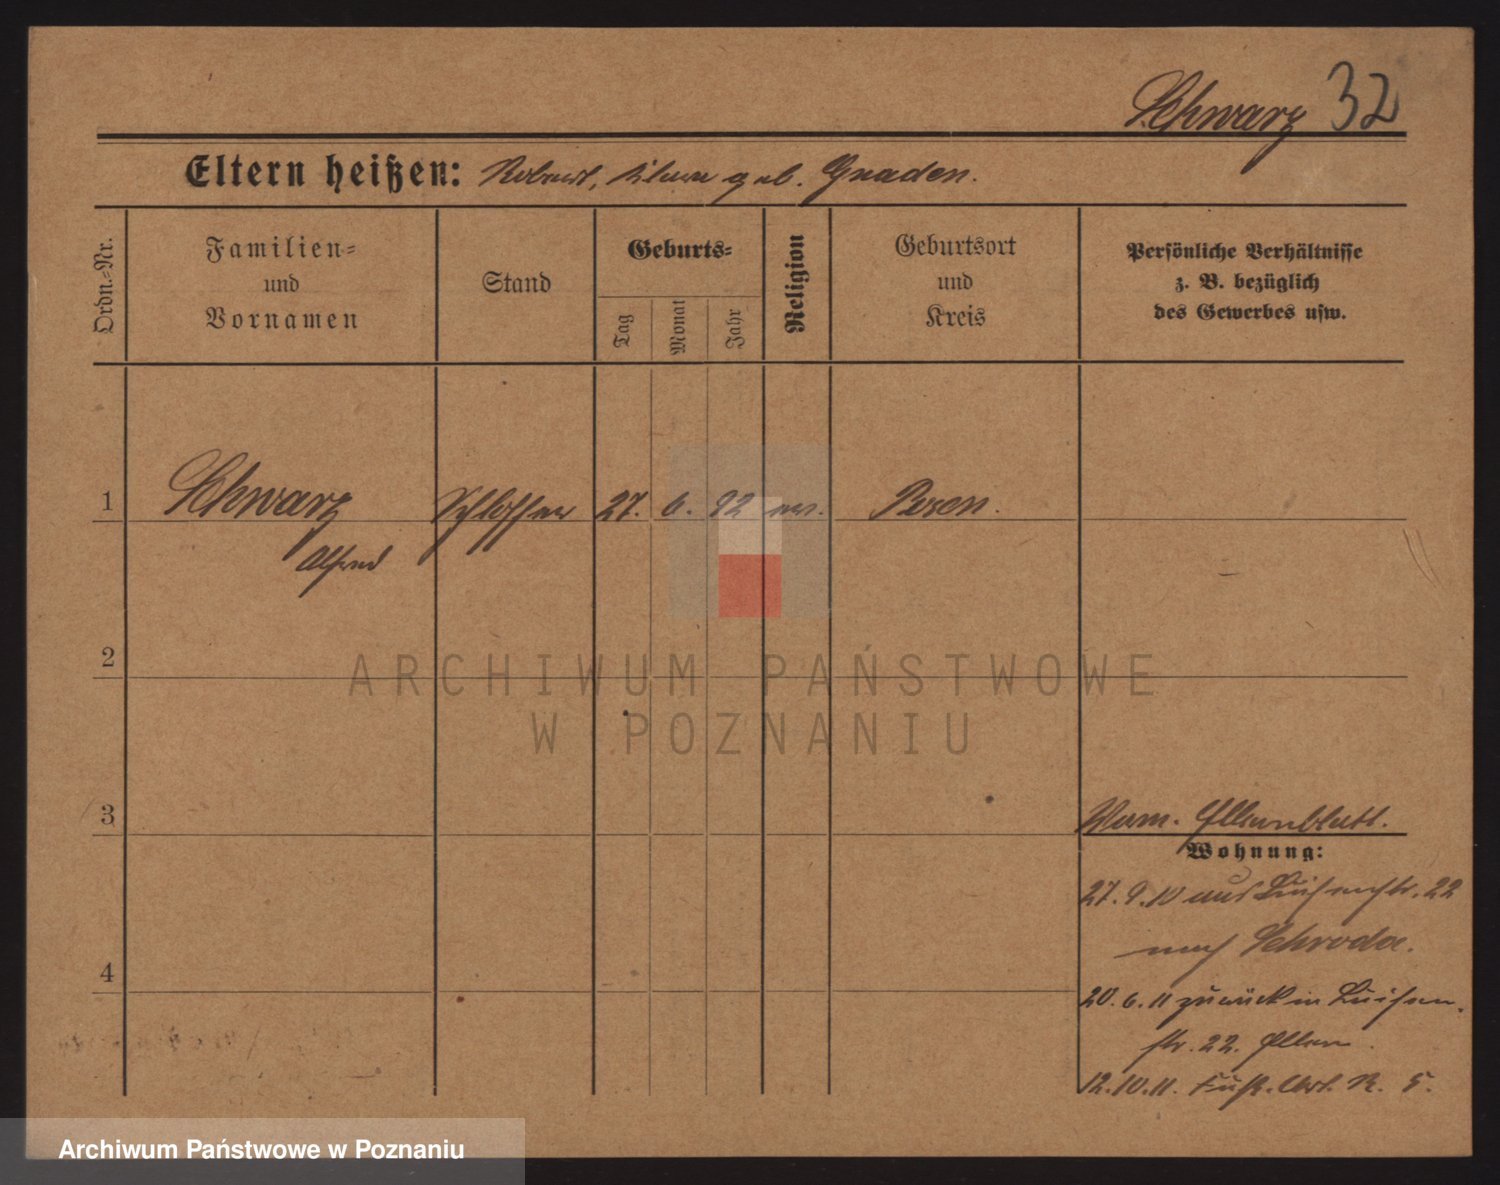 Schwarz 32
Eltern heißen: Robert, geb. Gnaden.
Ordn.=Nr.
Familien=
und
Vornamen
Stand
Geburts=
Tag
Monat
Jahr
Religion
Geburtsort
und
Kreis
Persönliche Verhältnisse
z. B. bezüglich
des Gewerbes usw.
1 Schwarz Schlosser 27. 6. 92 ev. Posen.
Alfred
2
ARCHIWUM PAŃSTWOWE
W POZNANIU
3
Elternblatt.
Wohnung:
27. 9. 10 aus Luisenstr. 22
nach Schroda.
4
20. 6. 11 zurück in Luisen
str. 22. Eltern.
12. 10. 11. Fuß. Art. R. 5.
Archiwum Państwowe w Poznaniu